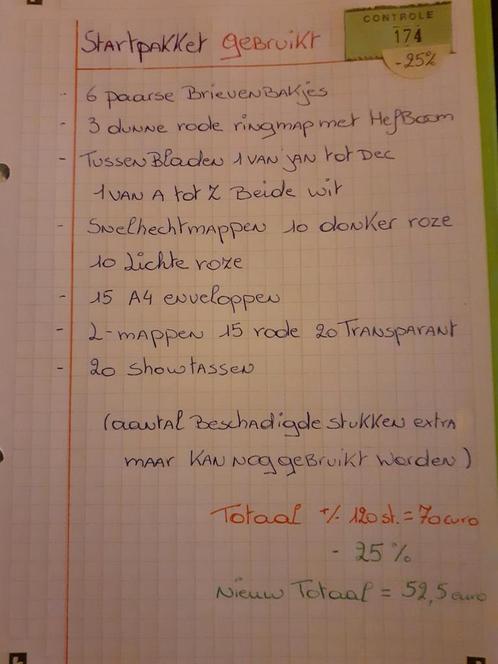 Startpakket gebruikt
CONTROLE
174
-25%
- 6 paarse Brievenbakjes
- 3 dunne rode ringmap met Hefboom
- Tussenbladen 1 van jan tot Dec
1 van A tot Z Beide wit
- Snelhechtmappen 10 donker roze
10 Lichte roze
- 15 A4 enveloppen
- L-mappen 15 rode 20 Transparant
- 20 showtassen
(aantal Beschadigde stukken extra
maar kan nog gebruikt worden)
Totaal +/- 120 st. = 70 euro
- 25 %
Nieuw Totaal = 52,5 euro